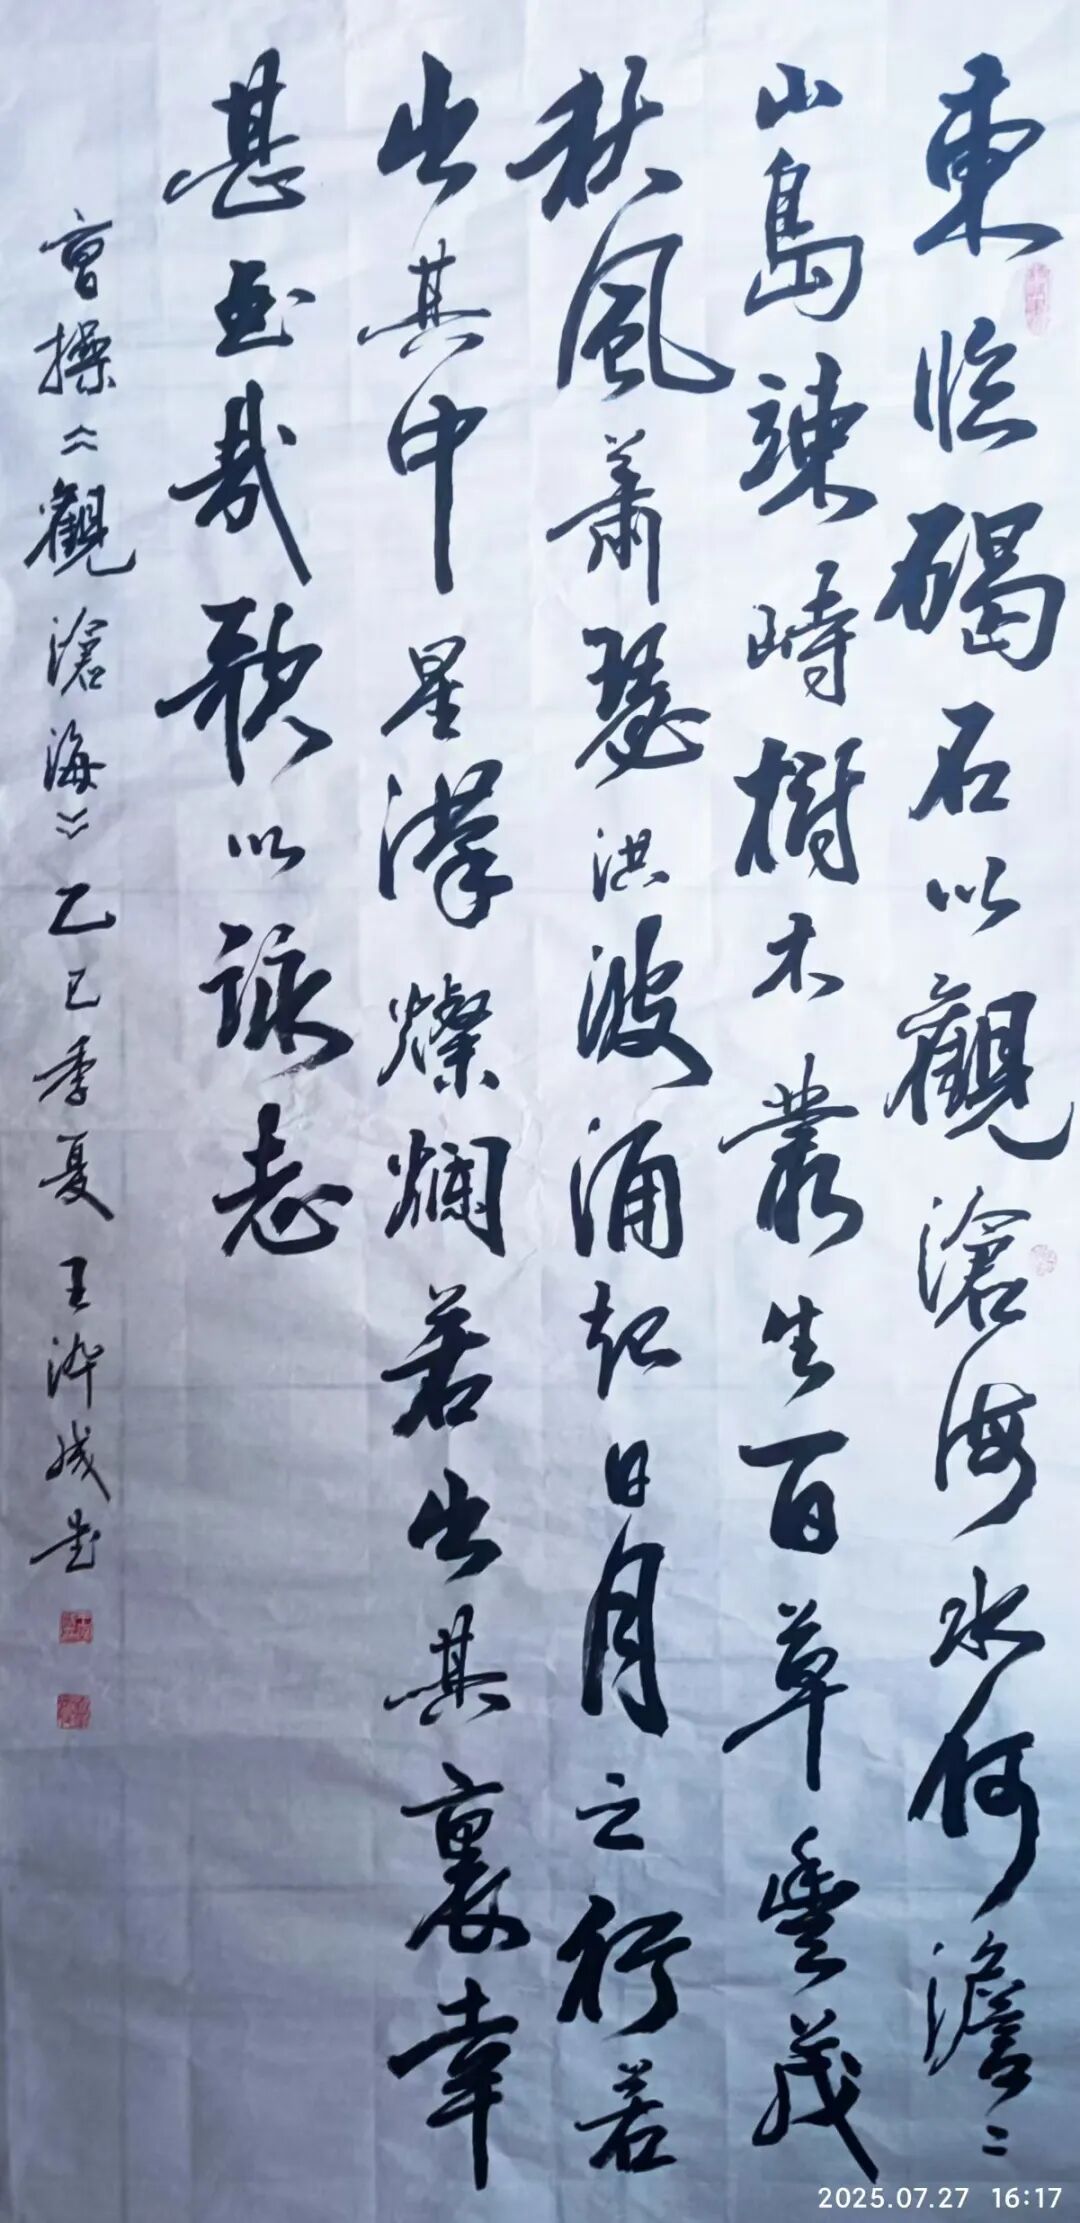 東臨碣石以觀滄海水何澹〻
山島竦峙樹木叢生百草豐茂
秋風蕭瑟洪波涌起日月之行若
出其中星漢燦爛若出其裏幸
甚至哉歌以詠志
曹操《觀滄海》乙巳季夏王
2025.07.27 16:17